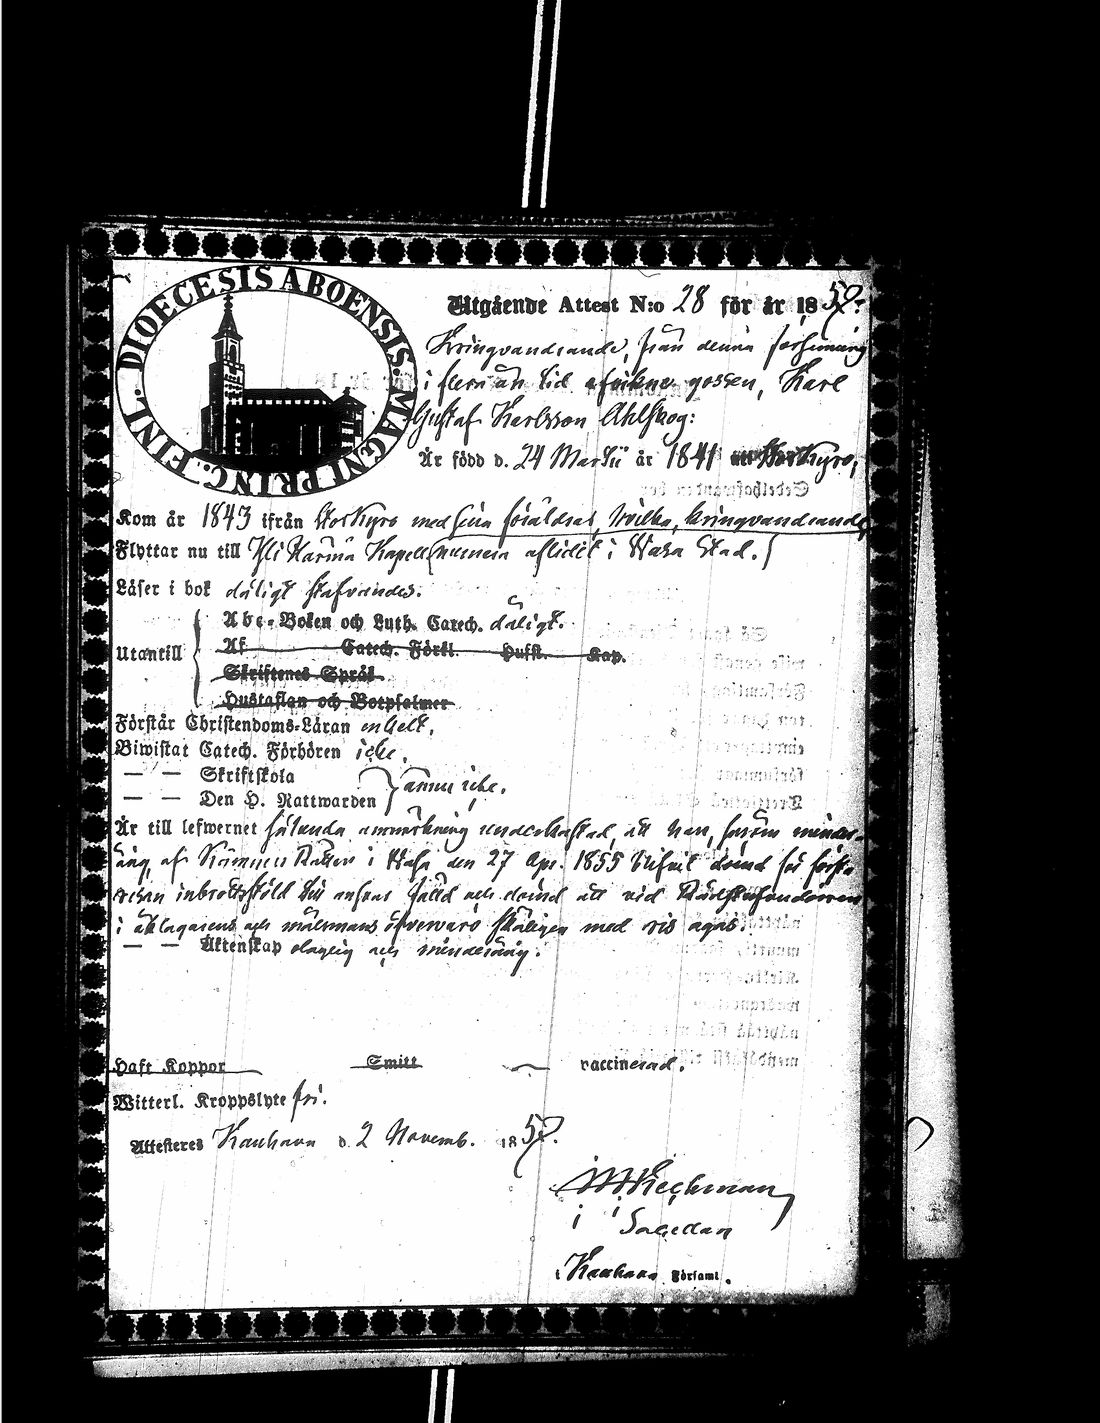 DIOECESIS ABOENSIS. MAGNI PRINC. FINL.
Utgående Attest N:o 28 för år 185
Kringvandrande, från denna församling
i flera års tid gossen, Karl
Gustaf Karlsson Ahlskog:
Är född d. 24 Martii år 1841 Storkyro,
Kom år 1843 ifrån Storkyro med sina föräldrar, hvilka, kringvandrande,
Flyttar nu till Ylihärmä Kapell (numera aflidit i Wasa Stad.)
Läser i bok dåligt stafvandes.
Utantill
Abc-Boken och Luth. Catech. dåligt.
Af Catech. Förkl. Husst. Kap.
Skriftenes Språk
Hustaflan och Botpsalmer
Förstår Christendoms-Läran enkelt.
Biwistat Catech. Förhören icke.
— — Skriftskola
— — Den H. Nattwarden
ännu icke.
Är till lefwernet följande anmärkning underkastad, att han, såsom minder-
årig, af Kämners Rätten i Wasa den 27 Apr. 1855 blifvit dömd för första
resan inbrottsstöld till ansvar fälld och dömd att vid Rådstufvudörren
i åklagarens och målsmans öfvervaro skäligen med ris agas.
— — Äktenskap och minderårig.
Haft Koppor Smitt vaccinerad.
Witterl. Kroppslyte fri.
Attesteres Kauhava d. 2 Novemb. 185
i Kauhava Församl.